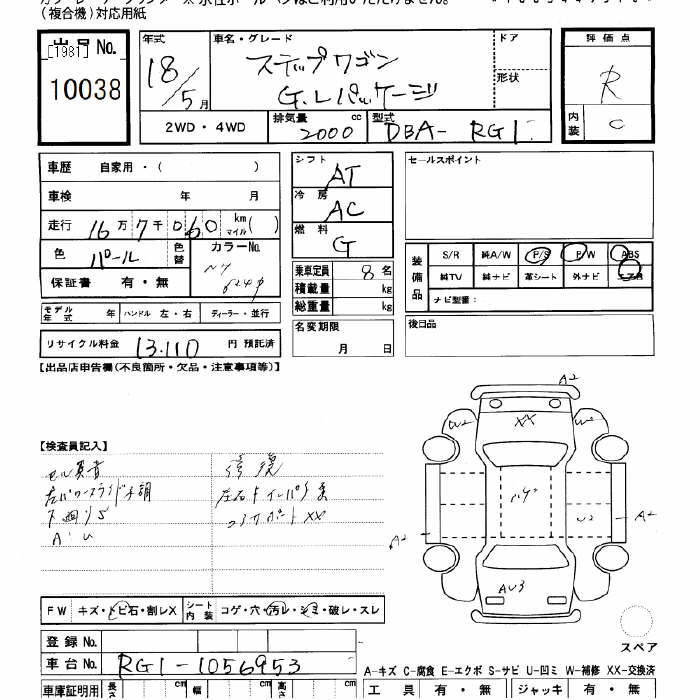 (複合機)対応用紙
出品 No.
[1981]
10038
年式
18/5 月
車名・グレード
ステップワゴン
G.Lパッケージ
ドア
形状
2WD・4WD
排気量 2000 cc
型式 DBA- RG1
評価点
R
内装 C
車歴 自家用・( )
車検 年 月
走行 16万7千060 km マイル( )
色 パール 色替
カラーNo.
保証書 有・無
シフト AT
冷房 AC
燃料 G
乗車定員 8 名
積載量 kg
総重量 kg
セールスポイント
装備品
S/R 純A/W P/S P/W ABS
純TV 純ナビ 革シート 外ナビ エアB
ナビ型番:
モデル年式 年 ハンドル 左・右 ディーラー・並行
名変期限
月 日
後日品
リサイクル料金 13.110 円 預託済
【出品店申告欄(不良箇所・欠品・注意事項等)】
【検査員記入】
セル異音
左パワースライド不調
下廻りS
A・U
修復
左右Fインパネ
コアサポートXX
A2
W2
XX
W2
U2
A2
A2
AU3
スペア
FW キズ・トビ石・割レX シート内装 コゲ・穴・汚レ・シミ・破レ・スレ
登録No.
車台No. RG1-1056953
A-キズ C-腐食 E-エクボ S-サビ U-凹ミ W-補修 XX-交換済
車庫証明用 長さ cm 幅 cm 高さ cm
工具 有・無 ジャッキ 有・無